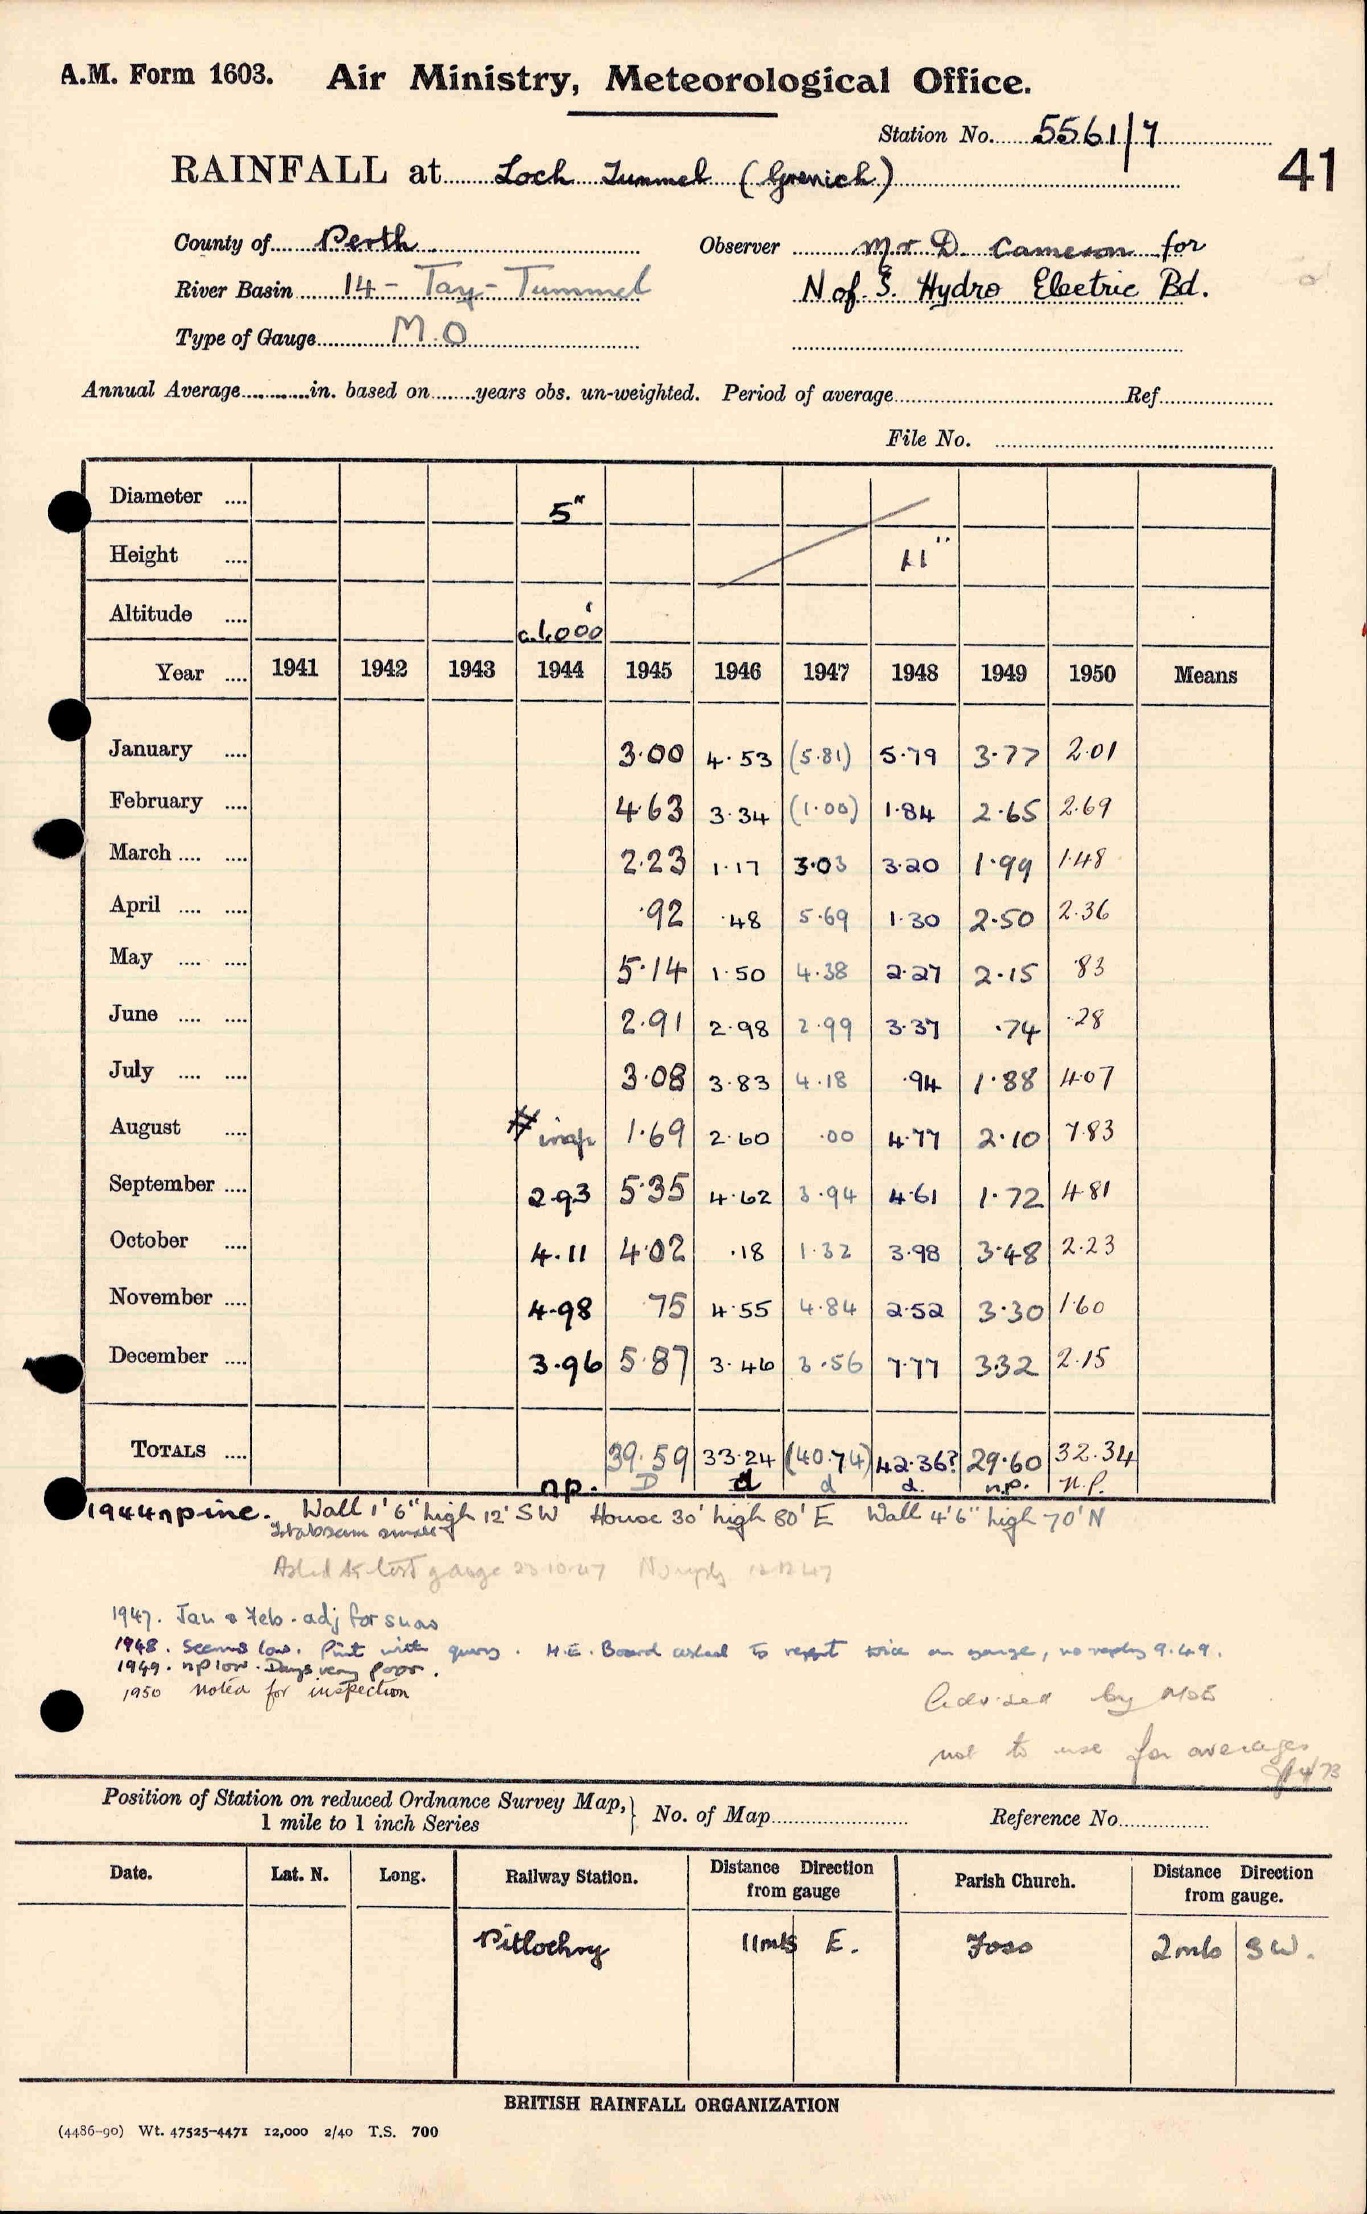 A.M. Form 1603. Air Ministry, Meteorological Office.
Station No. 5561/7
41
RAINFALL at Loch Tummel (Grenich)
County of Perth Observer Mr D. Cameron for
River Basin 14 - Tay - Tummel N of S. Hydro Electric Bd.
Type of Gauge M.O
Annual Average in. based on years obs. un-weighted. Period of average Ref
File No.
Diameter 5"
Height 11"
Altitude c.1,000'
Year 1941 1942 1943 1944 1945 1946 1947 1948 1949 1950 Means
January 3.00 4.53 (5.81) 5.79 3.77 2.01
February 4.63 3.34 (1.00) 1.84 2.65 2.69
March 2.23 1.17 3.03 3.20 1.99 1.48
April .92 .48 5.69 1.30 2.50 2.36
May 5.14 1.50 4.38 2.27 2.15 .83
June 2.91 2.98 2.99 3.37 .74 .28
July 3.08 3.83 4.18 .94 1.88 4.07
August 1.69 2.60 .00 4.77 2.10 7.83
September 2.93 5.35 4.62 3.94 4.61 1.72 4.81
October 4.11 4.02 .18 1.32 3.98 3.48 2.23
November 4.98 .75 4.55 4.84 2.52 3.30 1.60
December 3.96 5.87 3.46 3.56 7.77 3.32 2.15
TOTALS 39.59 33.24 (40.74) 42.36? 29.60 32.34
np. D d d d. n.p. n.p.
1944 np inc. Wall 1' 6" high 12' SW House 30' high 80' E Wall 4' 6" high 70' N
Asked to test gauge 23.10.47 No reply 12.12.47
1947. Jan & Feb. adj for snow
1948. Seems low. Print with query. H.E. Board asked to report twice on gauge, no reply 9.49.
1949. np low. Days very poor.
1950 noted for inspection
Advised by
not to use for averages
Position of Station on reduced Ordnance Survey Map, 1 mile to 1 inch Series } No. of Map Reference No.
Date. Lat. N. Long. Railway Station. Distance Direction from gauge Parish Church. Distance Direction from gauge.
Pitlochry 11 mls E. Foss 2 mls SW.
BRITISH RAINFALL ORGANIZATION
(4486-90) Wt. 47525-4471 12,000 2/40 T.S. 700